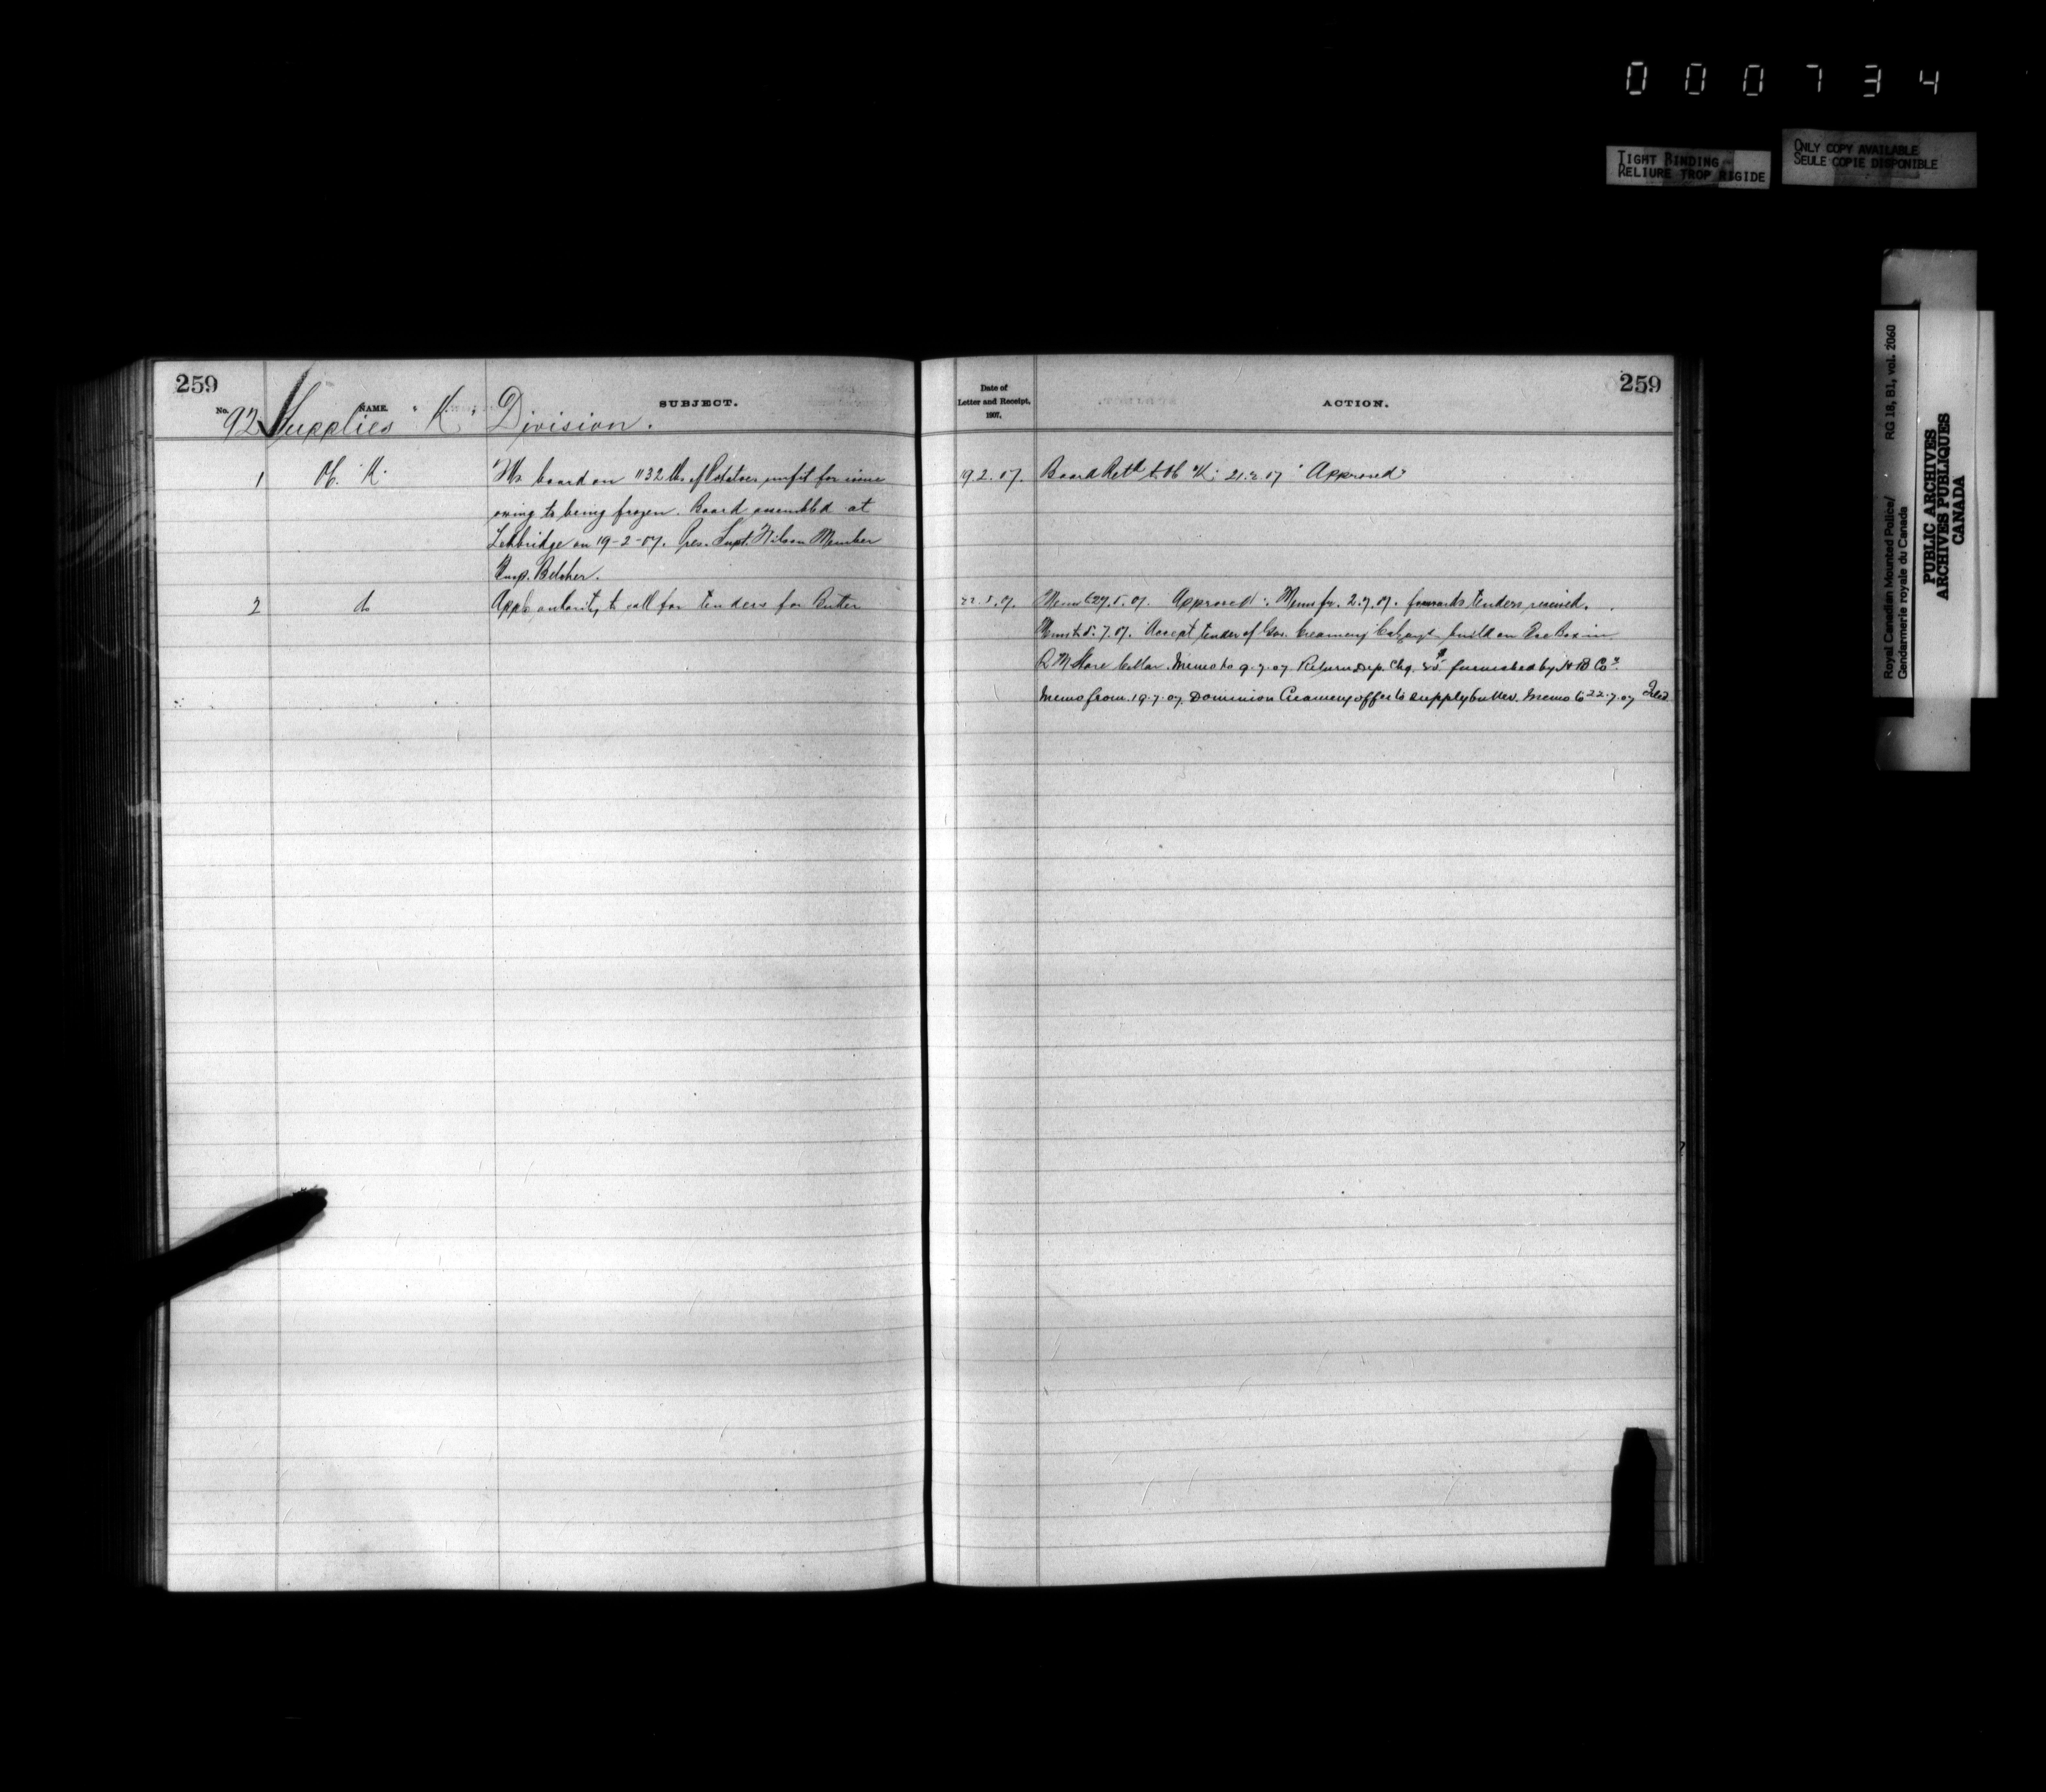 000734
TIGHT BINDING
RELIURE TROP RIGIDE
ONLY COPY AVAILABLE
SEULE COPIE DISPONIBLE
Royal Canadian Mounted Police/ RG 18, B1, vol. 2060
Gendarmerie royale du Canada
PUBLIC ARCHIVES
ARCHIVES PUBLIQUES
CANADA
259
No. NAME. SUBJECT.
92 Supplies "K" Division.
1 "K" board on 1132 lbs of Potatoes unfit for issue
owing to being frozen. Board assembled at
Lethbridge on 19-2-07. Pres. Supt. Wilson Member
Insp. Belcher.
2 do Appl. authority to call for tenders for Butter
259
Date of
Letter and Receipt,
1907.
ACTION.
19.2.07. Board Retd to "K" 21.2.07 "Approved"
22.5.07. Memo to 27.5.07. Approved. Memo fr. 2.7.07. forwards tenders received.
Memo to 5.7.07. Accept tender of Gov. Creamery Calgary build an Ice Box in
Q M Store Cellar. Memo to 9.7.07 Return Dep. Chq. furnished by H B Co.
Memo from 19.7.07. Dominion Creamery offer to supply butter. Memo to 22.7.07